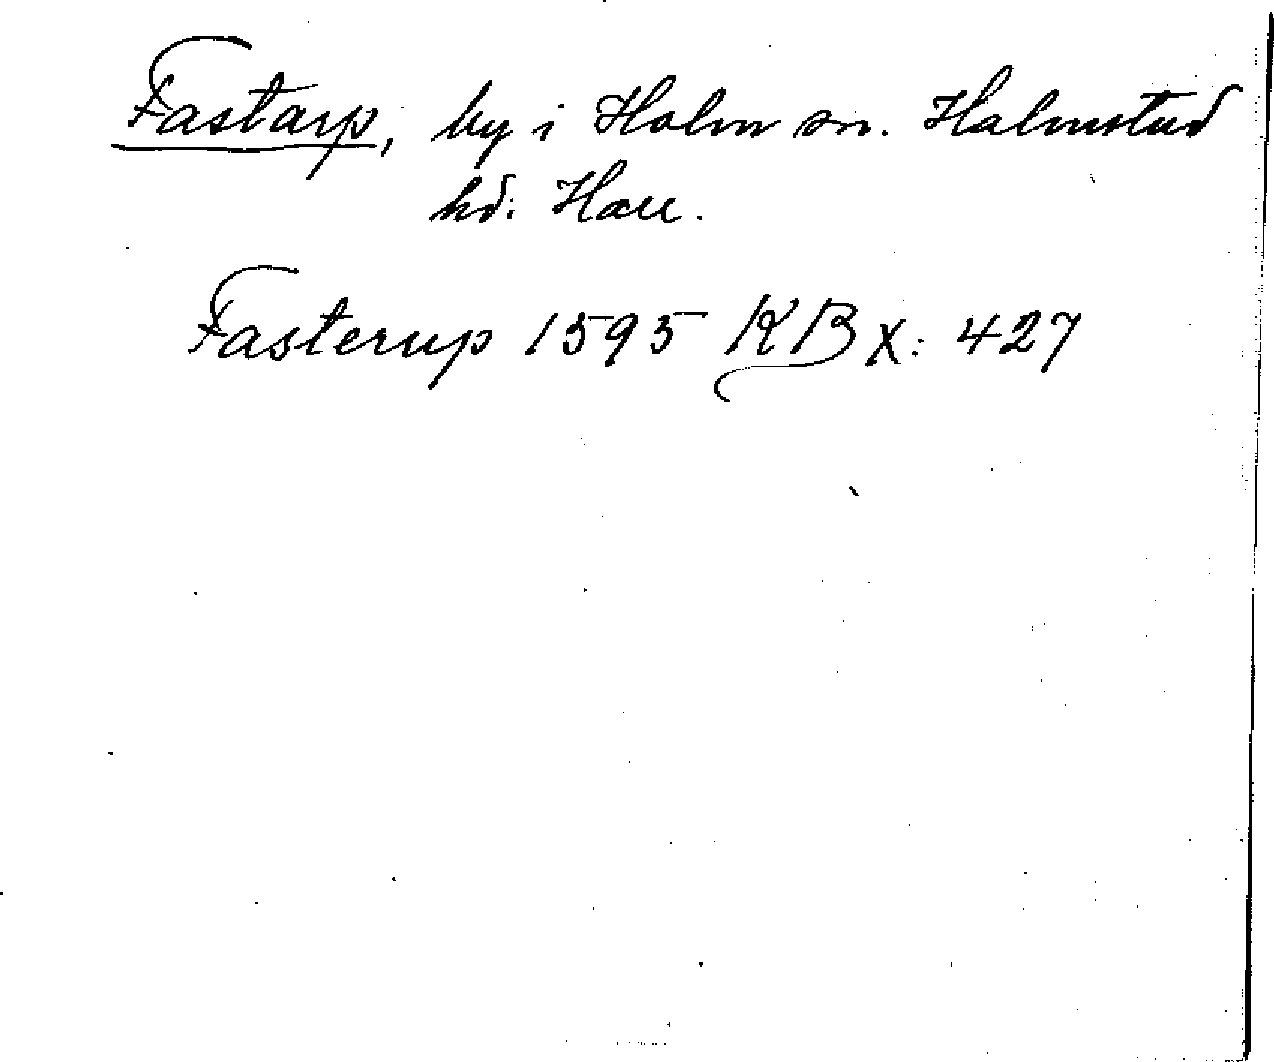 Fastarp, by i Holm sn. Halmstad
hd. Hall.
Fasterup 1595 KB X: 427